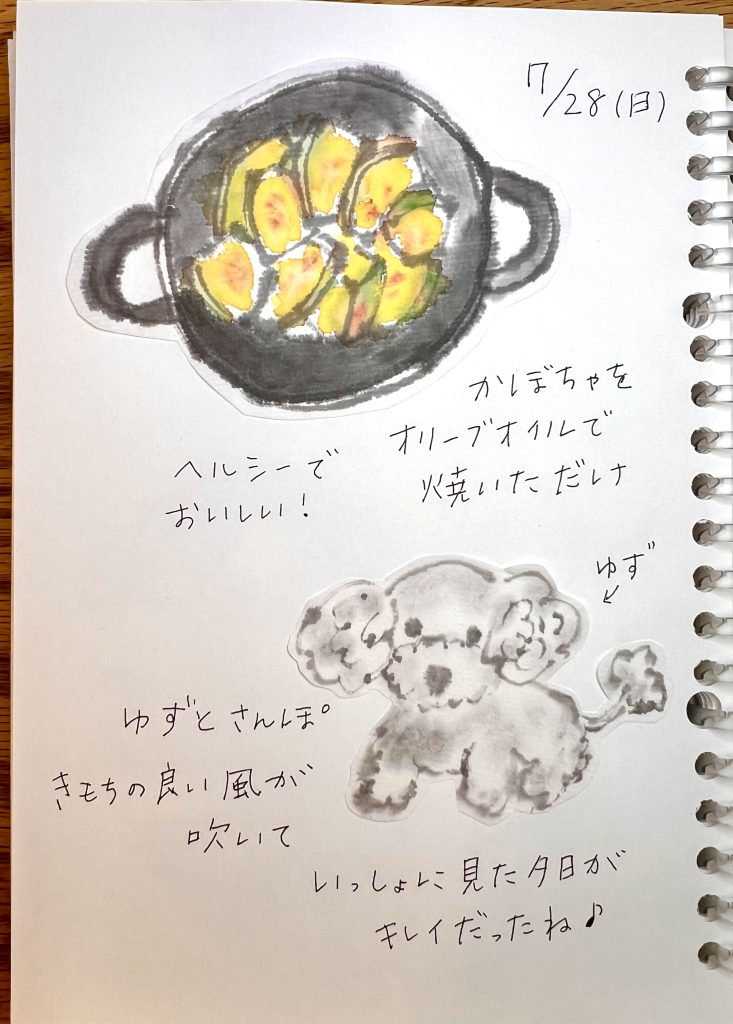 7/28(日)
かぼちゃを
オリーブオイルで
焼いただけ
ヘルシーで
おいしい!
ゆず
ゆずとさんぽ。
きもちの良い風が
吹いて
いっしょに見た夕日が
キレイだったね♪